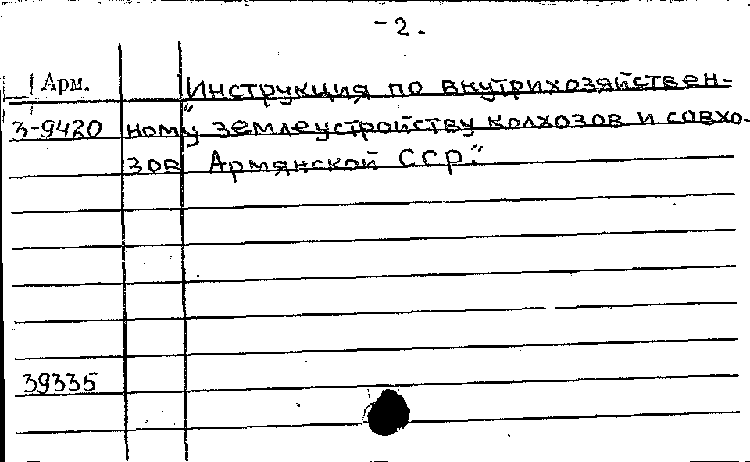 -2.
Арм. Инструкция по внутрихозяйствен-
3-9420 ному "землеустройству колхозов и совхо-
зов Армянской ССР."
39335